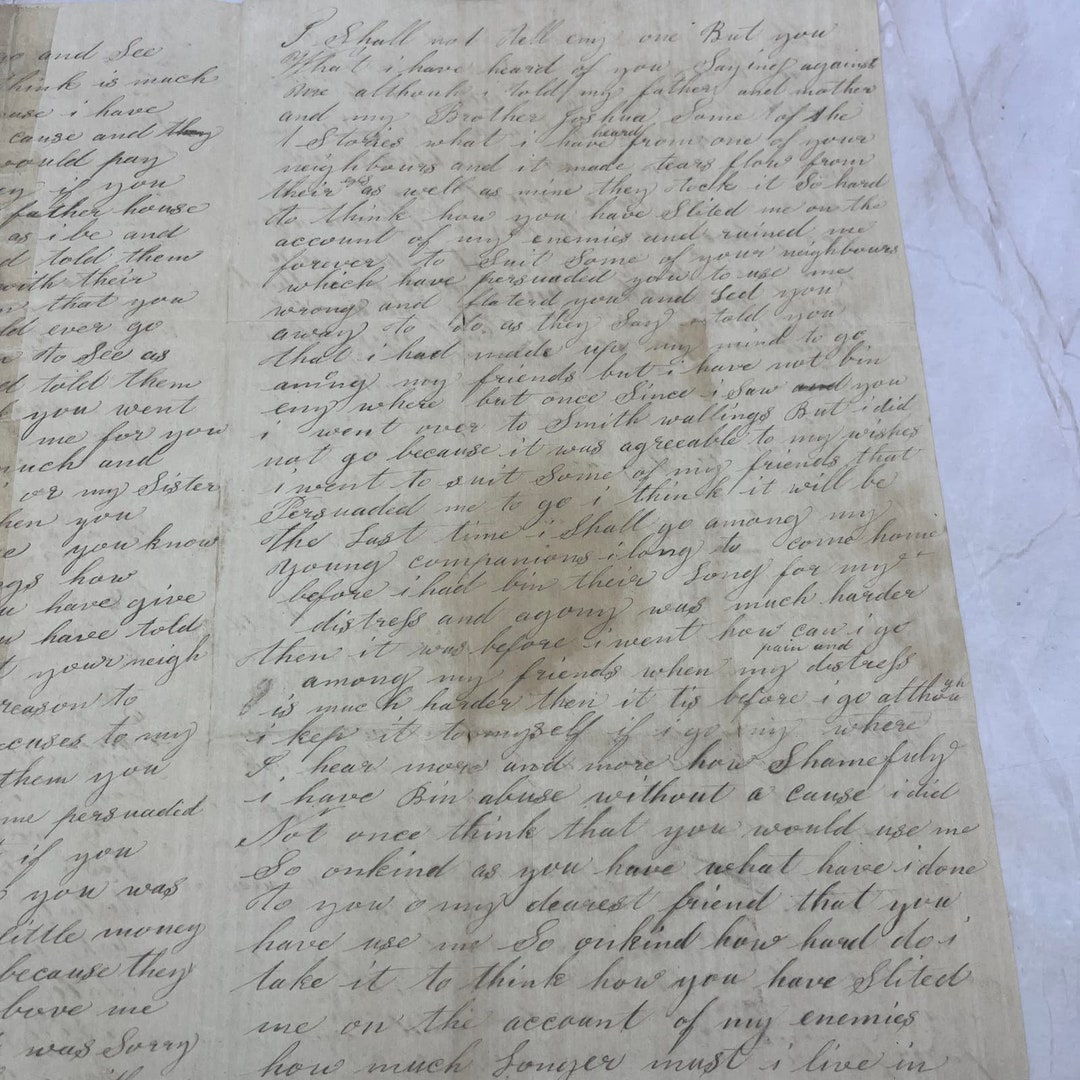 go and See
think is much
use i have
cause and they
would pay
ey if you
father house
as i be and
d told them
with their
n that you
ld ever go
n to See as
d told them
you went
me for you
much and
i or my Sister
hen you
e you know
ngs how
u have give
w have told
t your neigh
reason to
ccuses to my
them you
me persuaded
if you
you was
little money
because they
bove me
was Sorry
I Shall not tell eny one But you
What i have heard of you Saying against
me although i told my father and mother
and my Brother Joshua Some of the
Stories what i have heard from one of your
neighbours and it made tears flow from
their eyes as well as mine they took it So hard
to think how you have Slited me on the
account of my enemies and ruined me
forever to Suit Some of your neighbours
which have persuaded you to use me
wrong and flaterd you and Led you
away to do as they Say i told you
that i had made up my mind to go
among my friends but i have not bin
eny where but once Since i Saw and you
i went over to Smith wallings But i did
not go because it was agreeable to my wishes
i went to suit Some of my friends that
Persuaded me to go i think it will be
the Last time i Shall go among my
young companions i long to come home
before i had bin their Long for my
distress and agony was much harder
then it was before i went how can i go
among my friends when my pain and distress
is much harder then it tis before i go although
i kep it to myself if i go my where
I hear more and more how Shamefuly
i have Bin abuse without a cause i did
Not once think that you would use me
So onkind as you have what have i done
to you o my dearest friend that you
have use me So onkind how hard do i
take it to think how you have Slited
me on the account of my enemies
how much Longer must i live in